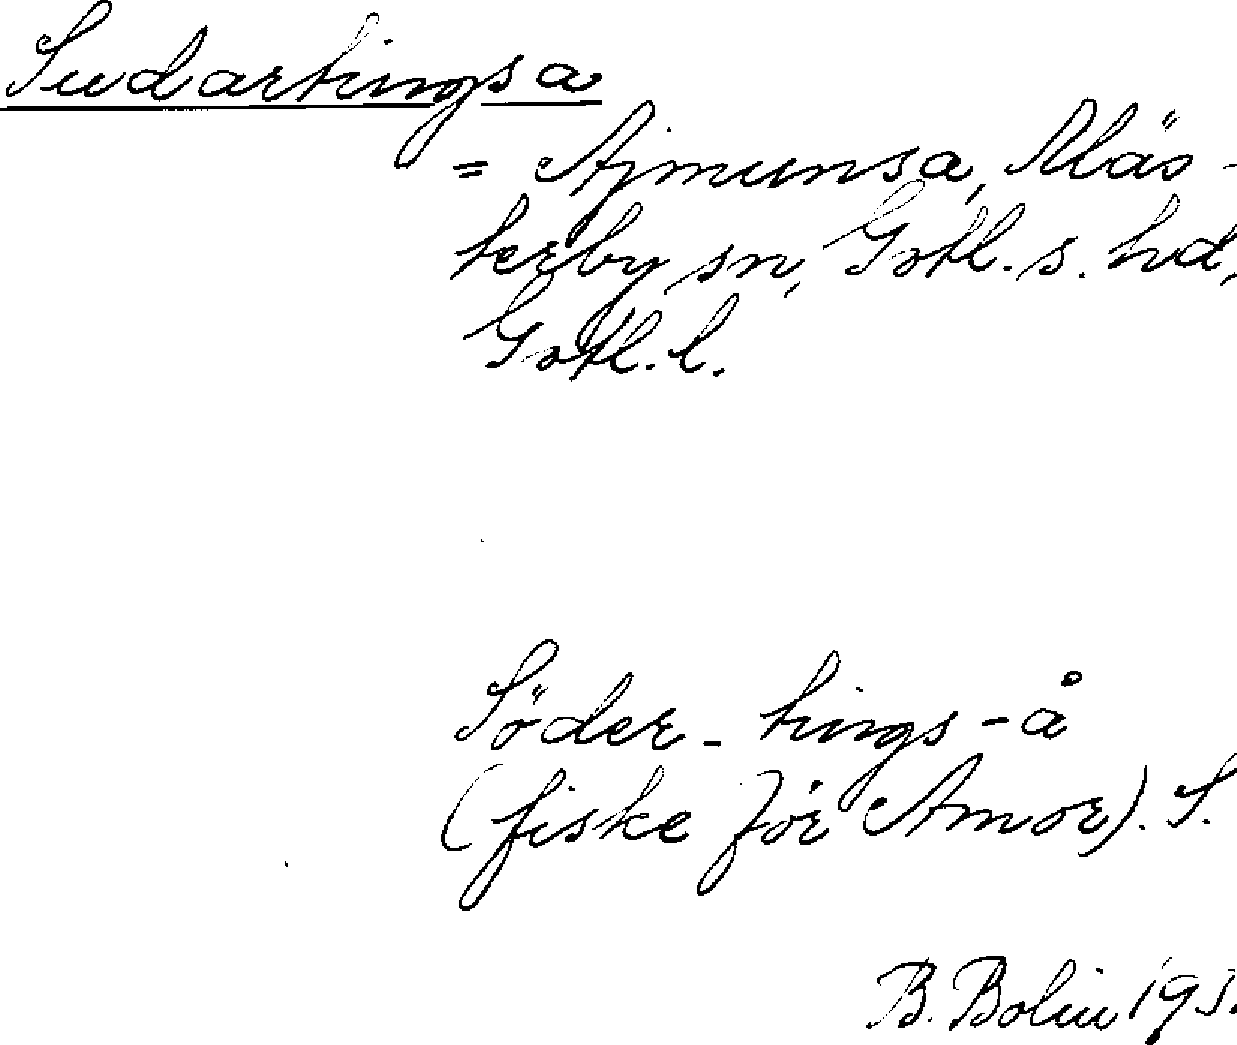 Sudartingsa
= Ajmunsa, Mäs-
terby sn, Gotl. s. hd,
Gotl. l.
Söder-tings-å
(fiske för Amor). S.
B. Bolin 193